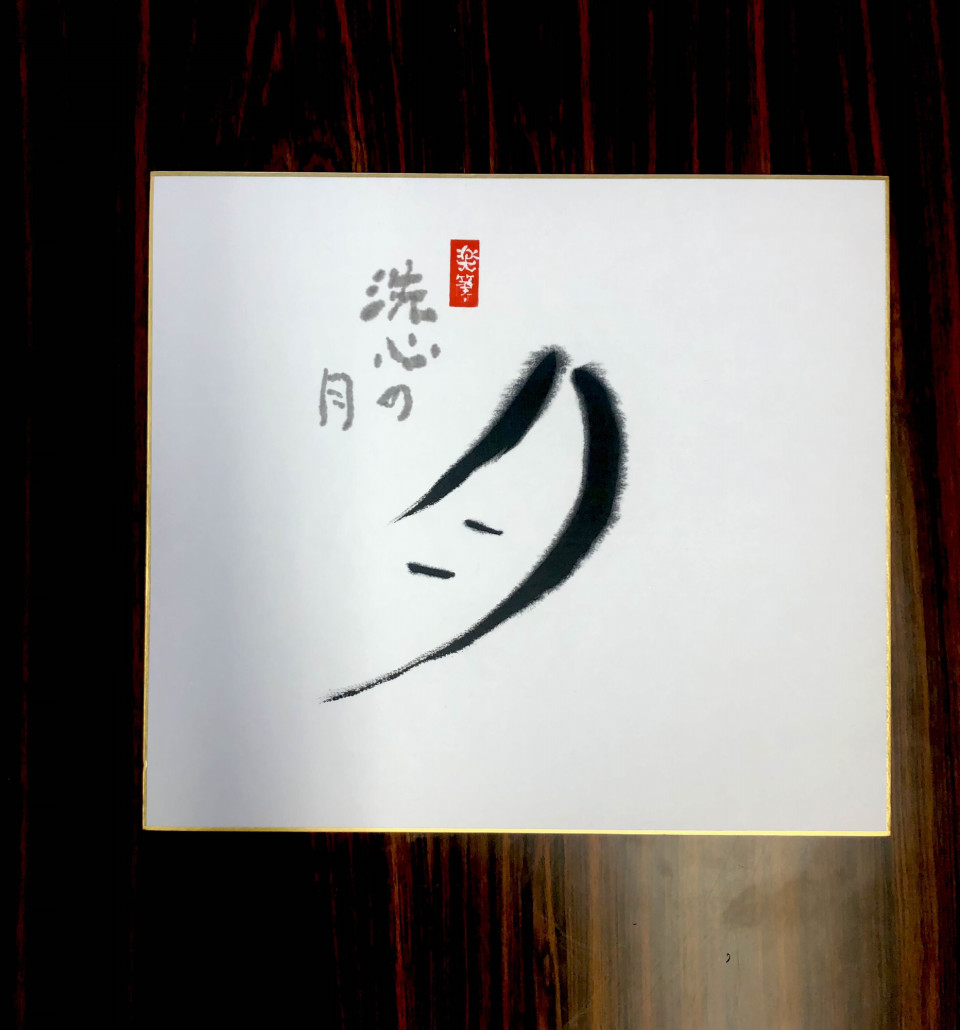 楽筆
洗心の
月
月